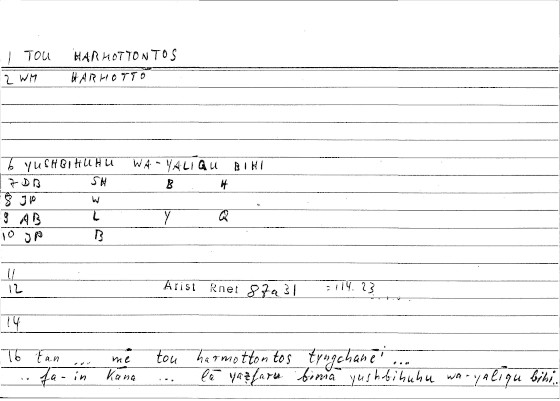 1 TOU HARMOTTONTOS
2 WM HARMOTTŌ
6 YUSHBIHUHU WA-YALĪQU BIHI
7 DB SH B H
8 JP W
9 AB L Y Q
10 JP B
11
12 Arist Rhet 87a31 =114.23
14
16 ean ... mē tou harmottontos tyngchanēi ...
.. fa-in kāna ... lā yaẓfaru bimā yushbihuhu wa-yalīqu bihi..